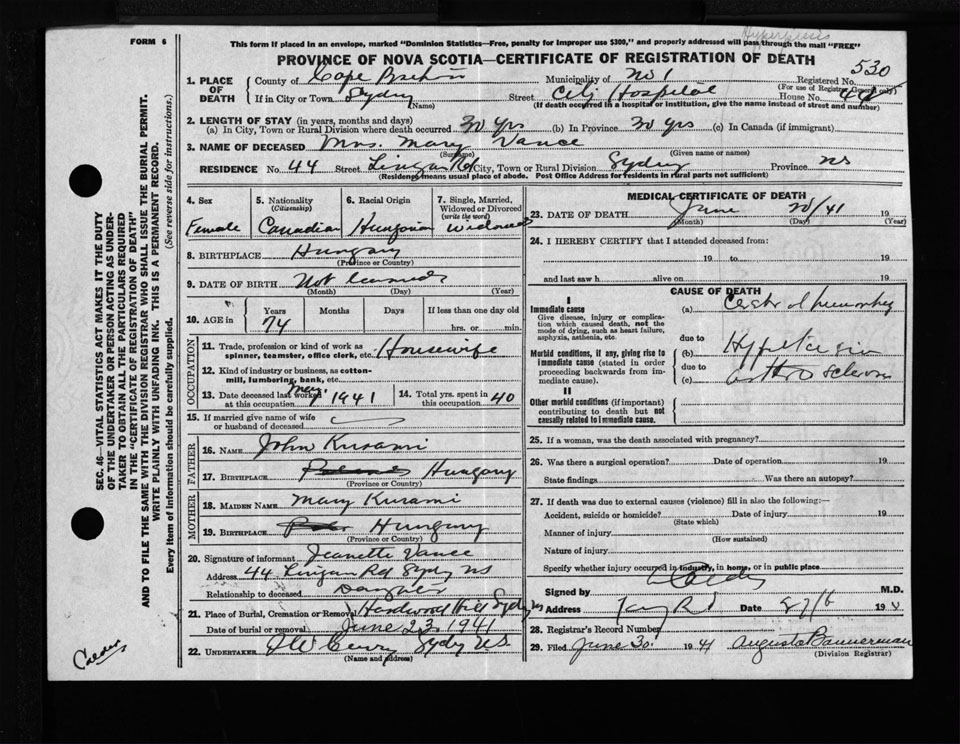 Hypertensis
FORM 6 This form if placed in an envelope, marked "Dominion Statistics—Free, penalty for improper use $300," and properly addressed will pass through the mail "FREE"
PROVINCE OF NOVA SCOTIA—CERTIFICATE OF REGISTRATION OF DEATH
530
1. PLACE OF DEATH County of Cape Breton Municipality of No 1 Registered No.
(For use of Registrar General only)
If in City or Town Sydney Street City Hospital House No. 44
(Name) (If death occurred in a hospital or institution, give the name instead of street and number)
2. LENGTH OF STAY (in years, months and days)
(a) In City, Town or Rural Division where death occurred 30 yrs (b) In Province 30 yrs (c) In Canada (if immigrant)
3. NAME OF DECEASED Mrs. Mary Vance
(Surname) (Given name or names)
RESIDENCE No. 44 Street Lingan Rd City, Town or Rural Division Sydney Province NS
(Residence means usual place of abode. Post Office Address for residents in rural parts not sufficient)
4. Sex 5. Nationality (Citizenship) 6. Racial Origin 7. Single, Married, Widowed or Divorced (write the word)
Female Canadian Hungarian Widowed
8. BIRTHPLACE Hungary
(Province or Country)
9. DATE OF BIRTH Not learned
(Month) (Day) (Year)
10. AGE in Years Months Days If less than one day old
74 hrs. or min.
OCCUPATION
11. Trade, profession or kind of work as spinner, teamster, office clerk, etc. Housewife
12. Kind of industry or business, as cotton-mill, lumbering, bank, etc.
13. Date deceased last worked at this occupation May 1941 14. Total yrs. spent in this occupation 40
15. If married give name of wife or husband of deceased
FATHER
16. Name John Kusami
17. Birthplace Hungary
(Province or Country)
MOTHER
18. Maiden Name Mary Kusami
19. Birthplace Hungary
(Province or Country)
20. Signature of informant Jeanette Vance
Address 44 Lingan Rd Sydney NS
Relationship to deceased Daughter
21. Place of Burial, Cremation or Removal Hardwood Hill Sydney NS
Date of burial or removal June 23 1941
22. Undertaker Sydney N.S
(Name and Address)
MEDICAL CERTIFICATE OF DEATH
23. DATE OF DEATH June 20/41 19
(Month) (Day) (Year)
24. I HEREBY CERTIFY that I attended deceased from:
19 to 19
and last saw h alive on 19
CAUSE OF DEATH
I
Immediate cause
Give disease, injury or complication which caused death, not the mode of dying, such as heart failure, asphyxia, asthenia, etc.
(a) Cerebral hemorrhag
due to
Morbid conditions, if any, giving rise to immediate cause (stated in order proceeding backwards from immediate cause).
(b) Hypertension
due to
(c) arthrosclerosis
II
Other morbid conditions (if important) contributing to death but not causally related to immediate cause.
25. If a woman, was the death associated with pregnancy?
26. Was there a surgical operation? Date of operation 19
State findings Was there an autopsy?
27. If death was due to external causes (violence) fill in also the following:—
Accident, suicide or homicide? Date of injury 19
(State which)
Manner of injury
(How sustained)
Nature of injury
Specify whether injury occured in industry, in home, or in public place
Signed by Calder M.D.
Address Date 27/6 19
28. Registrar's Record Number
29. Filed June 30 1941 Augusta Bannerman
(Division Registrar)
SEC. 46—VITAL STATISTICS ACT MAKES IT THE DUTY
OF THE UNDERTAKER OR PERSON ACTING AS UNDER-
TAKER TO OBTAIN ALL THE PARTICULARS REQUIRED
IN THE "CERTIFICATE OF REGISTRATION OF DEATH"
AND TO FILE THE SAME WITH THE DIVISION REGISTRAR WHO SHALL ISSUE THE BURIAL PERMIT.
WRITE PLAINLY WITH UNFADING INK. THIS IS A PERMANENT RECORD.
Every item of information should be carefully supplied. (See reverse side for instructions.)
Calder